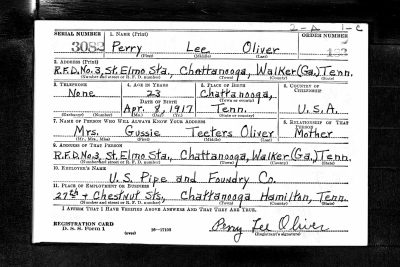 2-A 1-C
SERIAL NUMBER 1. NAME (Print) ORDER NUMBER
3082 Perry Lee Oliver
(First) (Middle) (Last)
2. ADDRESS (Print)
R.F.D. No. 3, St. Elmo Sta., Chattanooga, Walker (Ga.) Tenn.
(Number and street or R. F. D. number) (Town) (County) (State)
3. TELEPHONE 4. AGE IN YEARS 5. PLACE OF BIRTH 6. COUNTRY OF CITIZENSHIP
None 23 Chattanooga,
DATE OF BIRTH (Town or county)
Apr. 8, 1917 Tenn. U.S.A.
(Exchange) (Number) (Mo.) (Day) (Yr.) (State or country)
7. NAME OF PERSON WHO WILL ALWAYS KNOW YOUR ADDRESS 8. RELATIONSHIP OF THAT PERSON
Mrs. Gussie Teeters Oliver Mother
(Mr., Mrs., Miss) (First) (Middle) (Last)
9. ADDRESS OF THAT PERSON
R.F.D. No. 3, St. Elmo Sta., Chattanooga, Walker (Ga.) Tenn.
(Number and street or R. F. D. number) (Town) (County) (State)
10. EMPLOYER'S NAME
U.S. Pipe and Foundry Co.
11. PLACE OF EMPLOYMENT OR BUSINESS
27th + Chestnut Sts, Chattanooga Hamilton, Tenn.
(Number and street or R. F. D. number) (Town) (County) (State)
I AFFIRM THAT I HAVE VERIFIED ABOVE ANSWERS AND THAT THEY ARE TRUE.
REGISTRATION CARD
D. S. S. Form 1 (over) 16-17105 Perry Lee Oliver
(Registrant's signature)